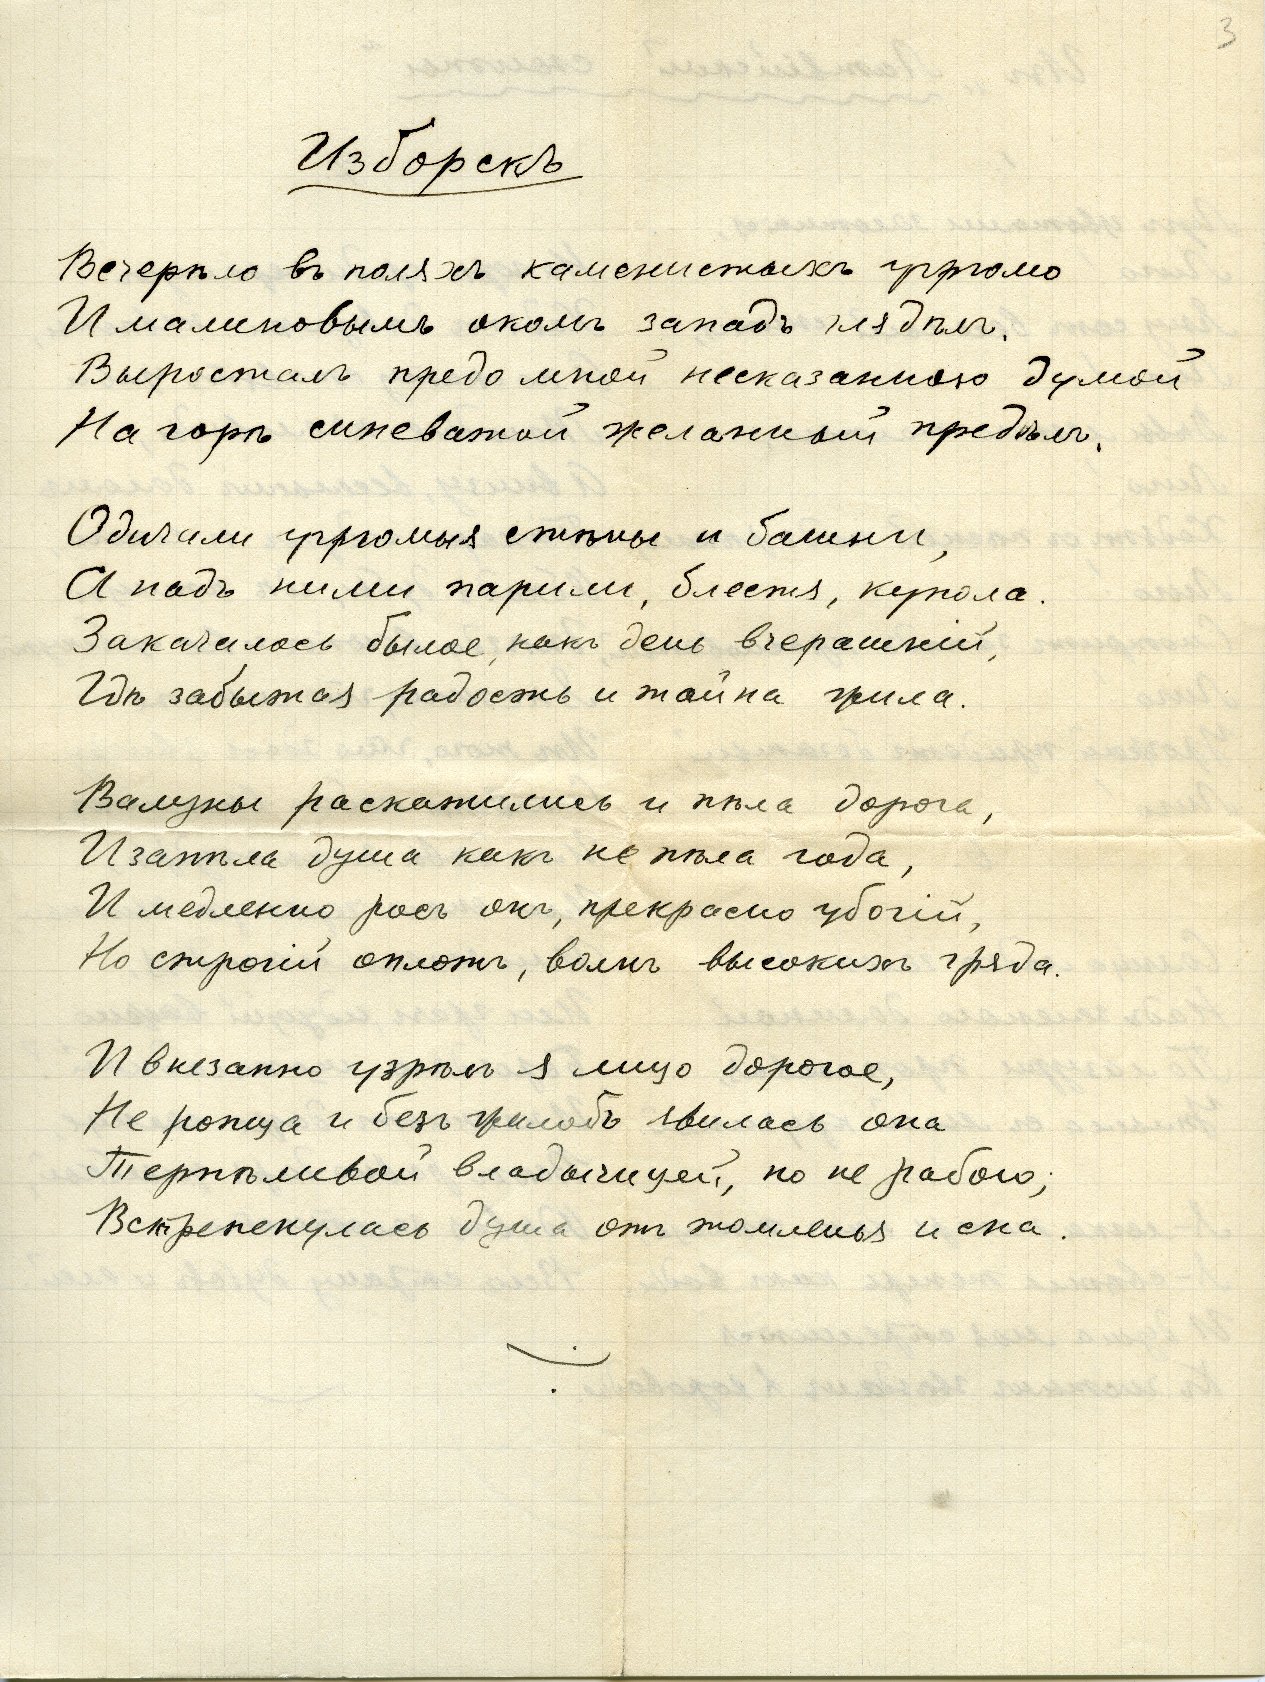 3
Изборскъ
Вечерѣло въ поляхъ каменистыхъ угрюмо
И малиновымъ окомъ западъ глядѣлъ.
Выросталъ предо мной несказанною думой
На горѣ синеватой желанный предѣлъ.
Одичали угрюмыя стѣны и башни,
А надъ ними парили, блестя, купола.
Закачалось былое, какъ день вчерашній,
Гдѣ забытая радость и тайна жила.
Валуны раскатились и пѣла дорога,
И запѣла душа какъ не пѣла года,
И медленно росъ онъ, прекрасно убогій,
Но строгій оплотъ, волнъ высокихъ гряда.
И внезапно узрѣлъ я лицо дорогое,
Не ропща и безъ жалобъ явилась она
Терпѣливой владычицей, но не рабою;
Встрепенулась душа отъ томленья и сна.